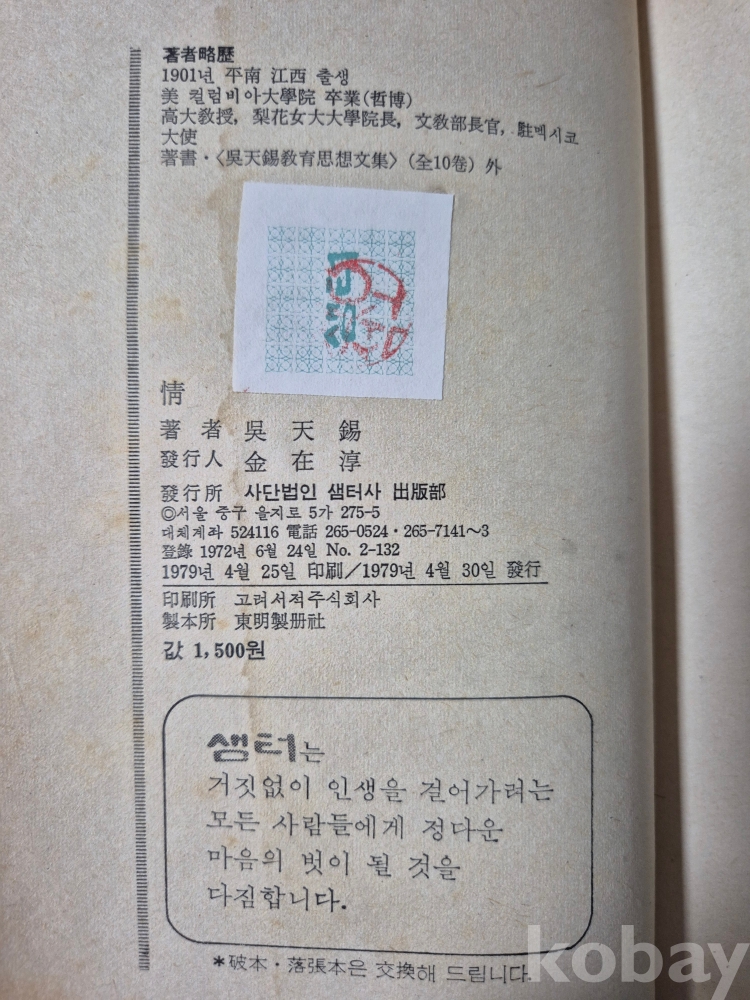 著者略歷
1901년 平南 江西 출생
美 컬럼비아大學院 卒業(哲博)
高大教授, 梨花女大大學院長, 文敎部長官, 駐멕시코
大使
著書·〈吳天錫敎育思想文集〉(全10卷) 外
샘터
情
著者 吳天錫
發行人 金在淳
發行所 사단법인 샘터사 出版部
◎서울 중구 을지로 5가 275-5
대체계좌 524116 電話 265-0524·265-7141~3
登錄 1972년 6월 24일 No. 2-132
1979년 4월 25일 印刷/1979년 4월 30일 發行
印刷所 고려서적주식회사
製本所 東明製册社
값 1,500원
샘터는
거짓없이 인생을 걸어가려는
모든 사람들에게 정다운
마음의 벗이 될 것을
다짐합니다.
*破本·落張本은 交換해 드립니다.
kobay